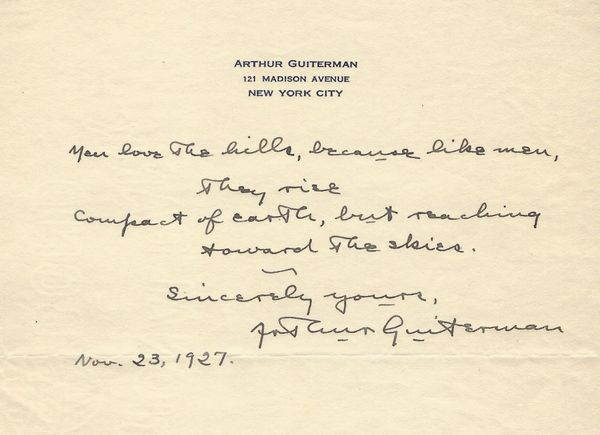 ARTHUR GUITERMAN
121 MADISON AVENUE
NEW YORK CITY
Men love the hills, because like men,
They rise
Compact of earth, but reaching
toward the skies.
Sincerely yours,
Arthur Guiterman
Nov. 23, 1927.